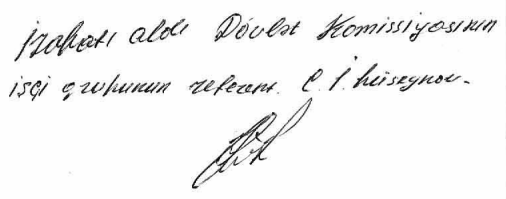 İzahatı aldı Dövlət Komissiyasının
işçi qrupunun referent. C. İ. Hüseynov.